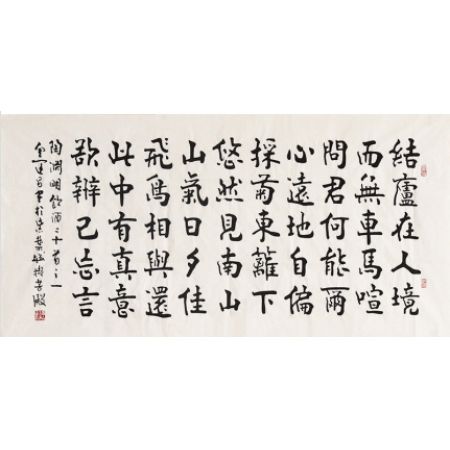 結廬在人境
而無車馬喧
問君何能爾
心遠地自偏
採菊東籬下
悠然見南山
山氣日夕佳
飛鳥相與還
此中有真意
欲辨已忘言
陶淵明飲酒二十首之一